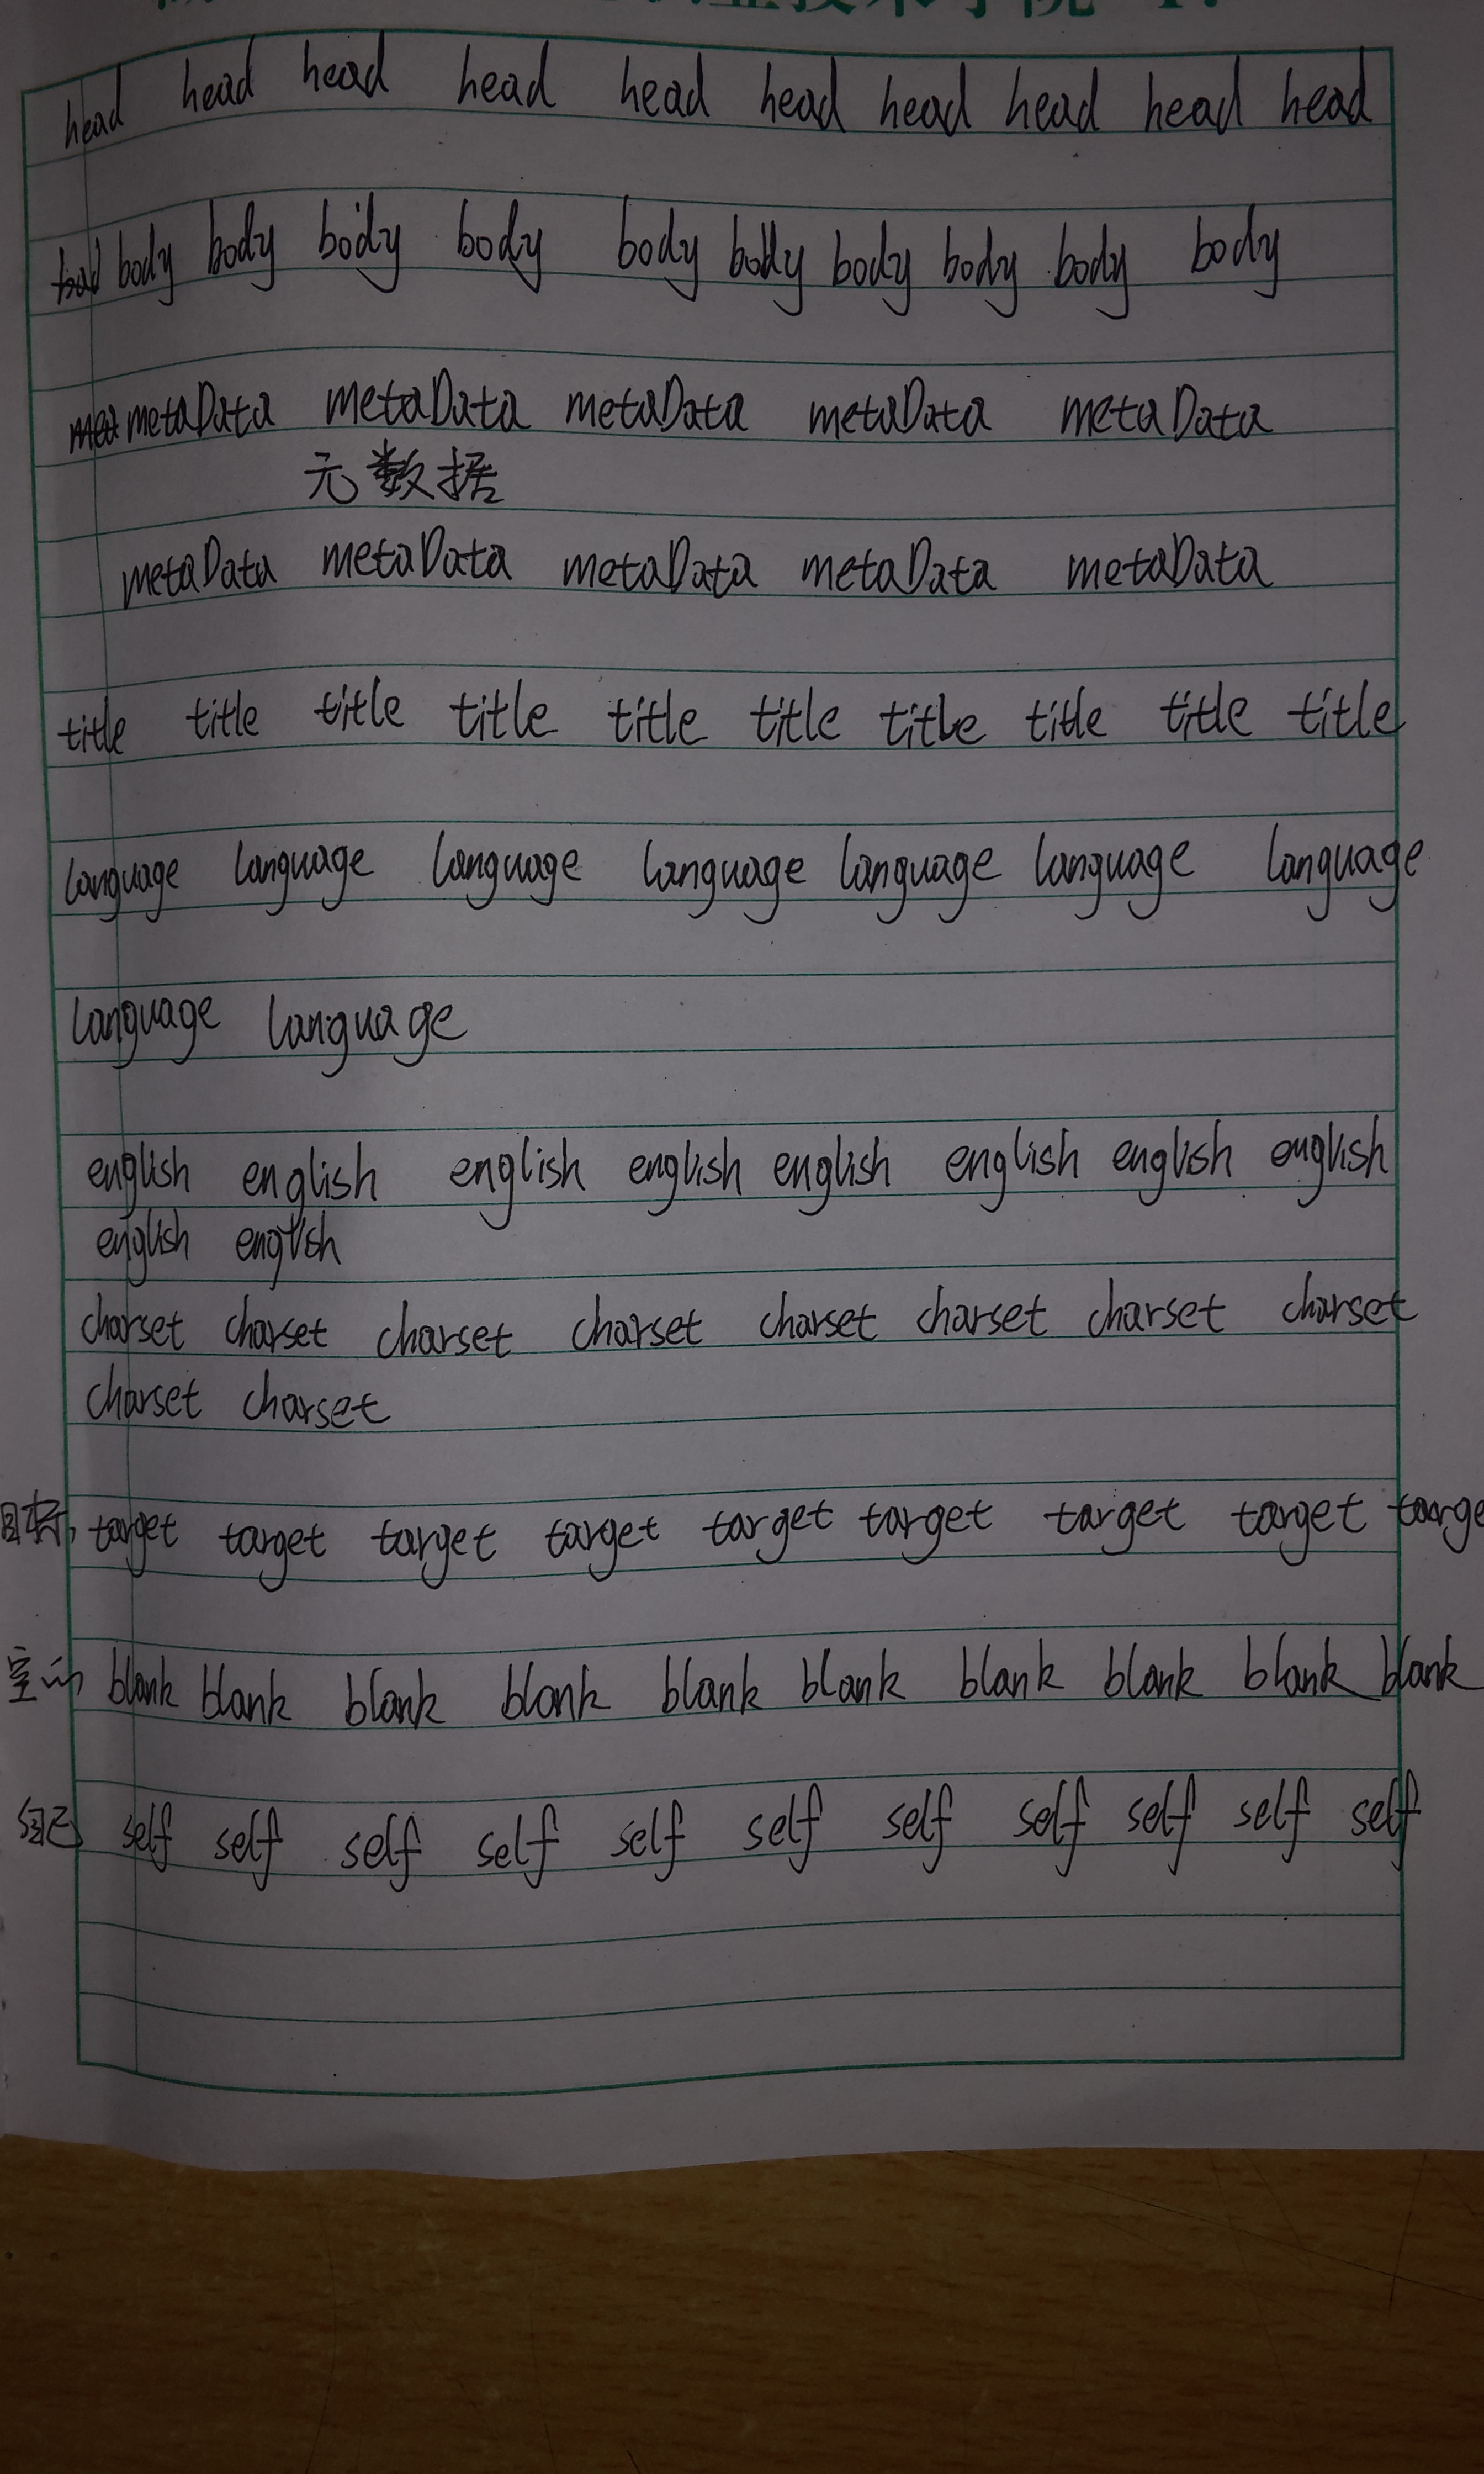 业技术学院
head head head head head head head head head head
body body body body body body body body body body
metaData metaData metaData metaData metaData
元数据
metaData metaData metaData metaData metaData
title title title title title title title title title title
language language language language language language language
language language
english english english english english english english english
english english
charset charset charset charset charset charset charset charset
charset charset
目标 target target target target target target target target targe
空的 blank blank blank blank blank blank blank blank blank blank
自己 self self self self self self self self self self self